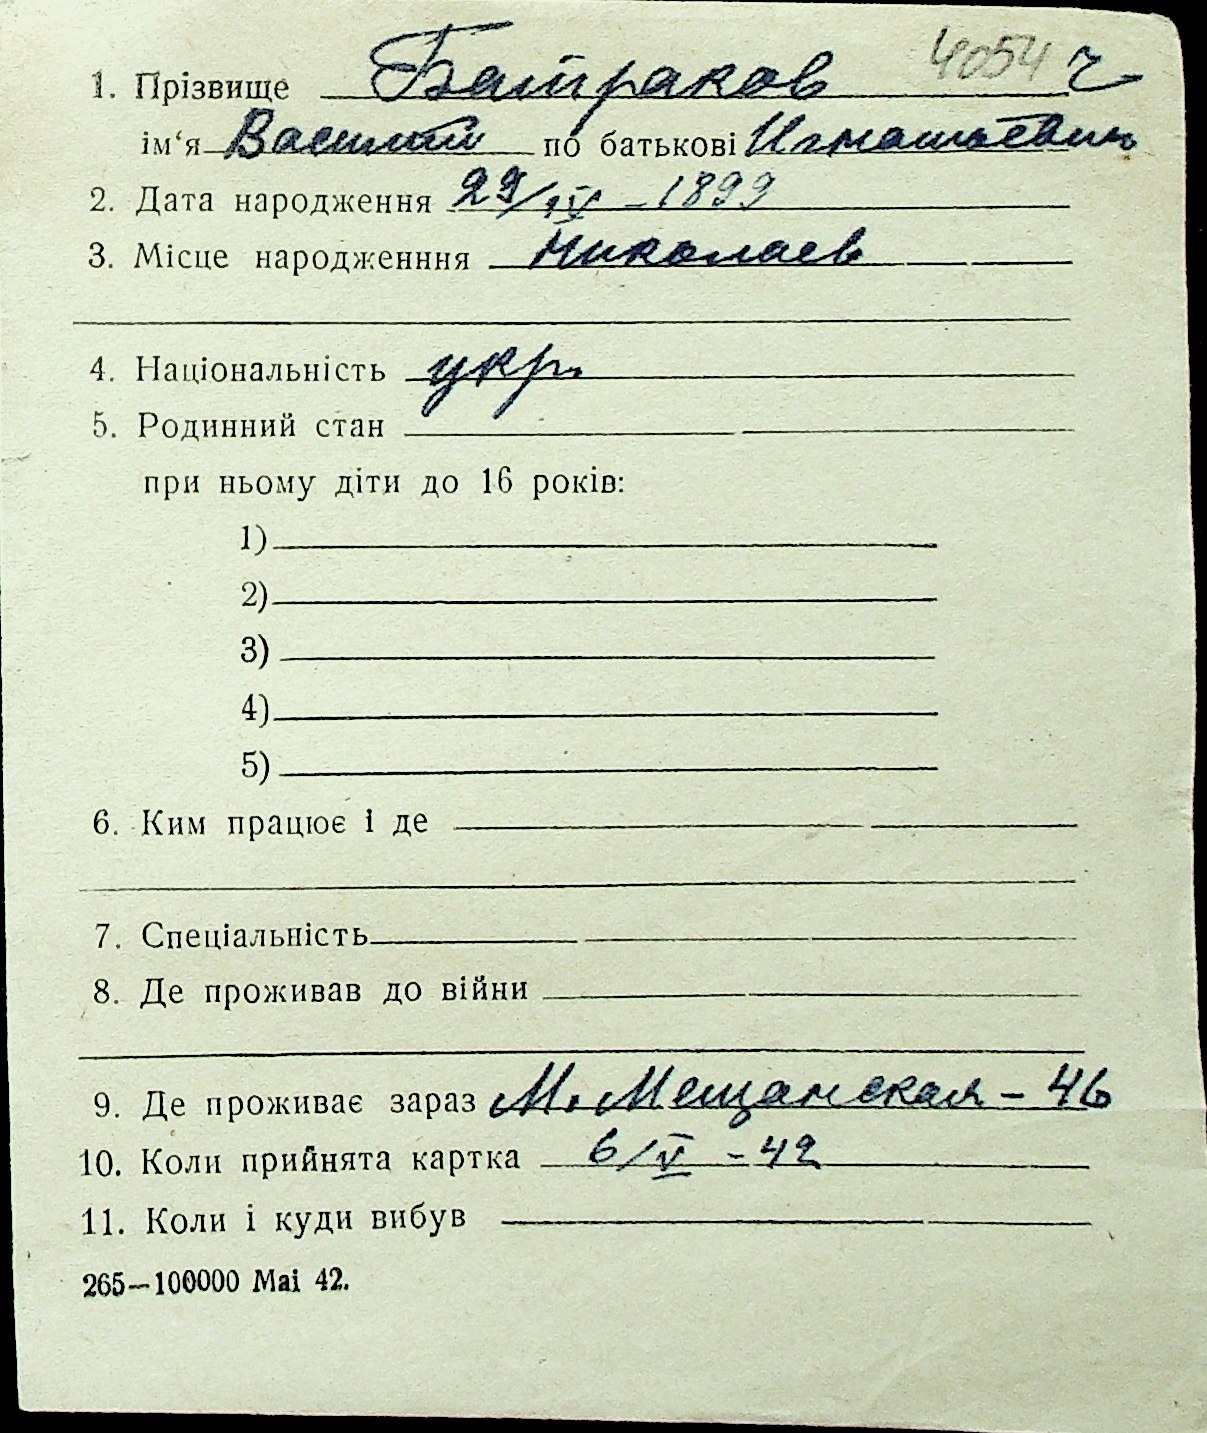 4054 ч
1. Прізвище Батраков
ім‘я Василий по батькові Игнатьевич
2. Дата народження 29/IV – 1899
3. Місце народженння Николаев
4. Національність укр.
5. Родинний стан
при ньому діти до 16 років:
1)
2)
3)
4)
5)
6. Ким працює і де
7. Спеціальність
8. Де проживав до війни
9. Де проживає зараз М. Мещанская – 46
10. Коли прийнята картка 6/V – 42
11. Коли і куди вибув
265—100000 Mai 42.